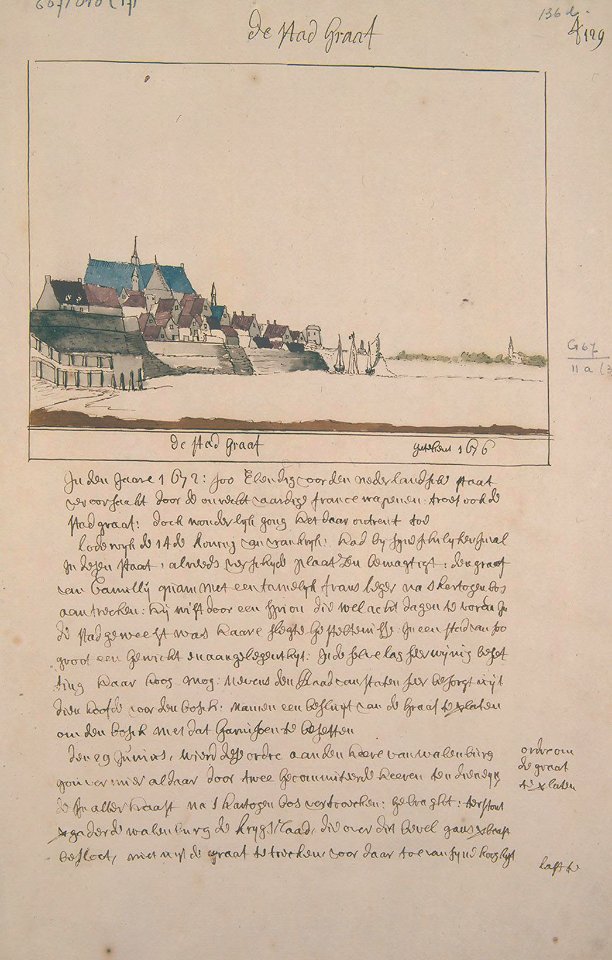 G67/010 (17)
136 d.
129
de Stad Graaf
G67
11 a (3
de Stad Graaf
getekent 1676
In den Jaare 1672: soo Elendig voor den nederlandse staat
veroorsaakt door de onrechtvaardige france wapenen: trof ook de
stad graaf: doch wonderlyk gong het daar ontrent toe
Lodewyk de 14de koning van vrankryk: had by syne
In desen staat, alreeds verscheyde plaatsen bemagtigt: den graaf
van Camilly quam met een tamelyk frans leger na s hertogenbos
aantrecken: hy wist door een spion die wel acht dagen te voren In
die stad geweest was haare slegte gesteltenisse: In een stad van soo
groot een gewicht en aangelegentheyt: In de selve lag seer wynig beset
ting haar hoog: mog: nevens den Raad van staten seer besorgt
voor den bosch: namen een besluyt van de Graaf te verlaten
om den bosch met dat Garnisoen te besetten
den 29 Junius, wierd dese ordre aan den heere van walenburg
gouverneur aldaar door twee Gecommitteerde heeren ten
de In aller haast na s hertogenbos vertrecken: gebraght: terstont
vergaderde walenburg de krygsraad, die over dit bevel gans
besloot, niet uyt de graaf te trecken voor daar toe van syne hoogheyt
ordre om
de graaf
te verlaten
last te